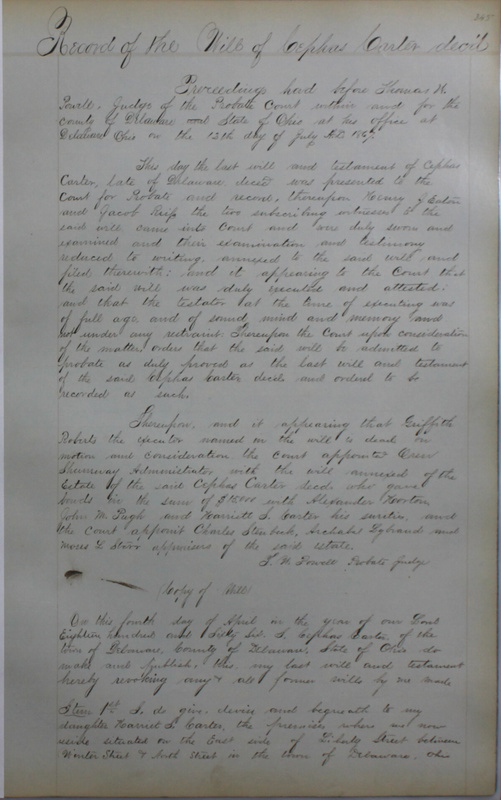 245
Record of the Will of Cephas Carter decd
Proceedings had before Thomas W.
Powell, Judge of the Probate Court within and for the
county of Delaware and State of Ohio at his office at
Delaware Ohio on the 12th day of July AD. 1867.
This day the last will and testament of Cephas
Carter, late of Delaware, decsd was presented to the
Court for Probate and record, thereupon Henry J Eaton
and Jacob the two subscribing witnesses to the
said will came into Court and were duly sworn and
examined and their examination and testimony
reduced to writing, annexed to the said will and
filed therewith: and it appearing to the Court that
the said will was duly executed and attested:
and that the testator at the time of executing was
of full age and of sound mind and memory and
not under any restraint. Thereupon the Court upon consideration
of the matter orders that the said will be admitted to
probate as duly proved as the last will and testament
of the said Cephas Carter decd and ordered to be
recorded as such.
Thereupon, and it appearing that Griffith
Roberts the executor named in the will is dead on
motion and consideration the court appointed
Shumway Administrator with the will annexed of the
Estate of the said Cephas Carter decd who gave
bonds in the sum of with Alexander Horton,
John M. Pugh and Harriett S. Carter his sureties, and
the Court appoint Charles Sternbeck, Archabel Lybrand and
Moses L Starr appraisers of the said estate.
T. W. Powell Probate Judge
Copy of Will
On this fourth day of April in the year of our Lord
Eighteen hundred and Sixty Six. I, Cephas Carter, of the
town of Delaware, County of Delaware, State of Ohio do
make and publish, this, my last will and testament
hereby revoking any & all former wills by me made
Item 1st I do give, devise and bequeath to my
daughter Harriet S. Carter, the premises where we now
reside situated on the East side of Liberty Street between
Winter Street & North Street in the town of Delaware, Ohio